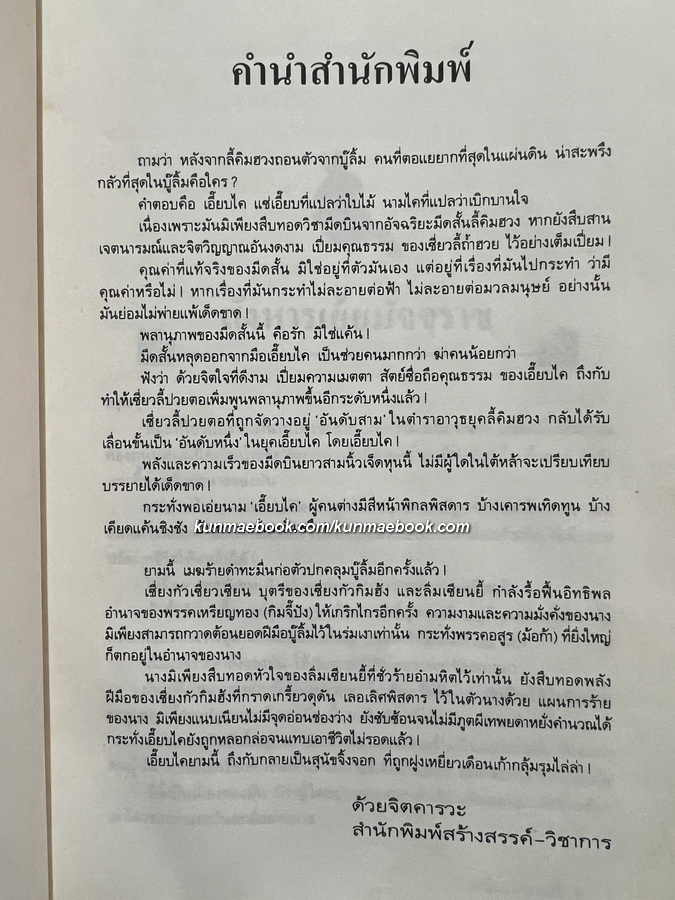 คำนำสำนักพิมพ์
ถามว่า หลังจากลี้คิมฮวงถอนตัวจากบู๊ลิ้ม คนที่ตอแยยากที่สุดในแผ่นดิน น่าสะพรึง
กลัวที่สุดในบู๊ลิ้มคือใคร ?
คำตอบคือ เอี๊ยบไค แซ่เอี๊ยบที่แปลว่าใบไม้ นามไคที่แปลว่าเบิกบานใจ
เนื่องเพราะมันมิเพียงสืบทอดวิชามีดบินจากอัจฉริยะมีดสั้นลี้คิมฮวง หากยังสืบสาน
เจตนารมณ์และจิตวิญญาณอันงดงาม เปี่ยมคุณธรรม ของเซี่ยวลี้ถ้ำฮวย ไว้อย่างเต็มเปี่ยม !
คุณค่าที่แท้จริงของมีดสั้น มิใช่อยู่ที่ตัวมันเอง แต่อยู่ที่เรื่องที่มันไปกระทำ ว่ามี
คุณค่าหรือไม่ ! หากเรื่องที่มันกระทำไม่ละอายต่อฟ้า ไม่ละอายต่อมวลมนุษย์ อย่างนั้น
มันย่อมไม่พ่ายแพ้เด็ดขาด !
พลานุภาพของมีดสั้นนี้ คือรัก มิใช่แค้น !
มีดสั้นหลุดออกจากมือเอี๊ยบไค เป็นช่วยคนมากกว่า ฆ่าคนน้อยกว่า
ฟังว่า ด้วยจิตใจที่ดีงาม เปี่ยมความเมตตา สัตย์ซื่อถือคุณธรรม ของเอี๊ยบไค ถึงกับ
ทำให้เซี่ยวลี้ปวยตอเพิ่มพูนพลานุภาพขึ้นอีกระดับหนึ่งแล้ว !
เซี่ยวลี้ปวยตอที่ถูกจัดวางอยู่ 'อันดับสาม' ในตำราอาวุธยุคลี้คิมฮวง กลับได้รับ
เลื่อนชั้นเป็น 'อันดับหนึ่ง' ในยุคเอี๊ยบไค โดยเอี๊ยบไค !
พลังและความเร็วของมีดบินยาวสามนิ้วเจ็ดหุนนี้ ไม่มีผู้ใดในใต้หล้าจะเปรียบเทียบ
บรรยายได้เด็ดขาด !
กระทั่งพอเอ่ยนาม 'เอี๊ยบไค' ผู้คนต่างมีสีหน้าพิกลพิสดาร บ้างเคารพเทิดทูน บ้าง
เคียดแค้นชิงชัง
kunmaebook.com/kunmaebook.com
ยามนี้ เมฆร้ายดำทะมื่นก่อตัวปกคลุมบู๊ลิ้มอีกครั้งแล้ว !
เซี่ยงกัวเซี่ยวเซียน บุตรีของเซี่ยงกัวกิมฮ้ง และลิ่มเซียนยี้ กำลังรื้อฟื้นอิทธิพล
อำนาจของพรรคเหรียญทอง (กิมจี๊ปัง) ให้เกริกไกรอีกครั้ง ความงามและความมั่งคั่งของนาง
มิเพียงสามารถกวาดต้อนยอดฝีมือบู๊ลิ้มไว้ในร่มเงาเท่านั้น กระทั่งพรรคอสูร (ม้อก้า) ที่ยิ่งใหญ่
ก็ตกอยู่ในอำนาจของนาง
นางมิเพียงสืบทอดหัวใจของลิ่มเซียนยี้ที่ชั่วร้ายอำมหิตไว้เท่านั้น ยังสืบทอดพลัง
ฝีมือของเซี่ยงกัวกิมฮ้งที่กราดเกรี้ยวดุดัน เลอเลิศพิสดาร ไว้ในตัวนางด้วย แผนการร้าย
ของนาง มิเพียงแนบเนียนไม่มีจุดอ่อนช่องว่าง ยังซับซ้อนจนไม่มีภูตผีเทพยดาหยั่งคำนวณได้
กระทั่งเอี๊ยบไคยังถูกหลอกล่อจนแทบเอาชีวิตไม่รอดแล้ว !
เอี๊ยบไคยามนี้ ถึงกับกลายเป็นสุนัขจิ้งจอก ที่ถูกฝูงเหยี่ยวเดือนเก้ากลุ้มรุมไล่ล่า !
ด้วยจิตคารวะ
สำนักพิมพ์สร้างสรรค์-วิชาการ